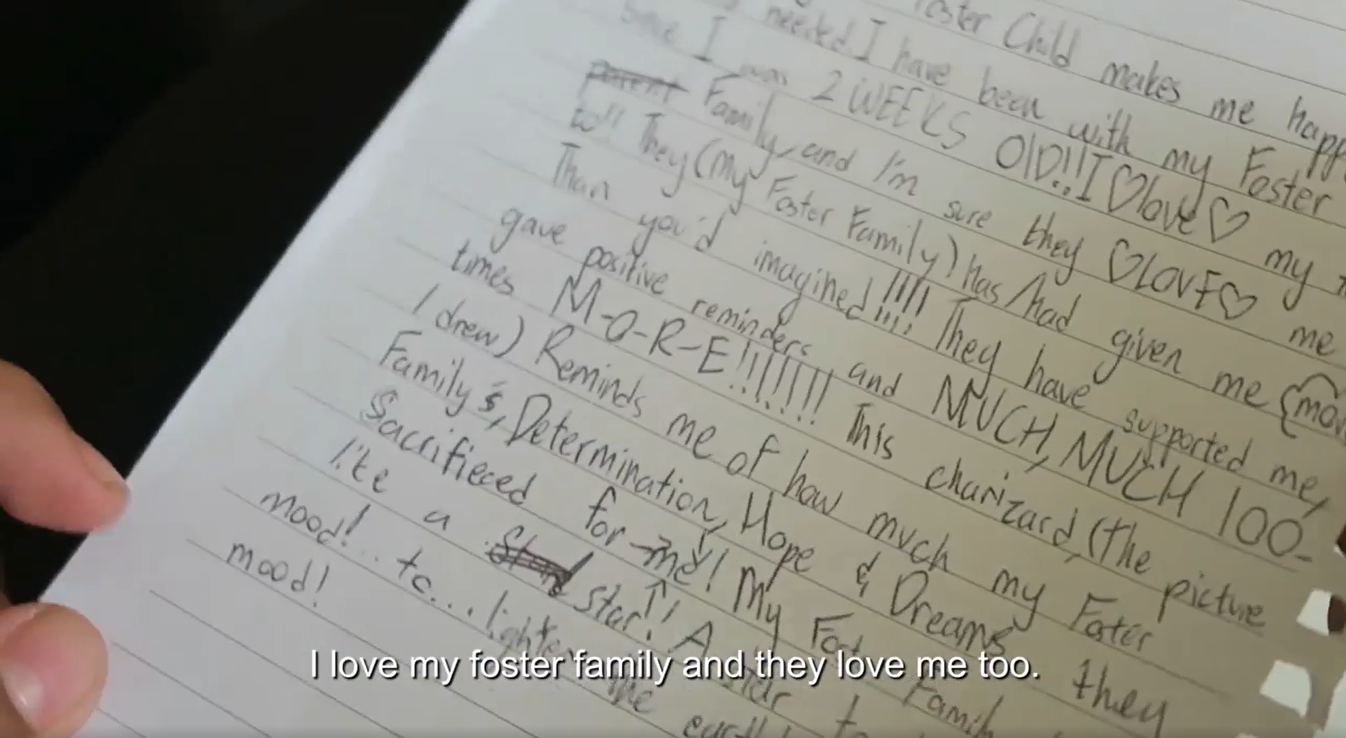 Foster Child makes me happ
needed I have been with my Foster
since I was 2 WEEKS OlD!! I ♡love♡ my
Family, and I'm sure they ♡LOVE♡ me
to!! They (my Foster Family) has/had given me
Than you'd imagined!!!! They have supported me,
gave positive reminders and MUCH, MUCH 100-
times M-O-R-E!!!!!!! This charizard, (the picture
I drew) Reminds me of how much my Foster
Family's, Determination, Hope & Dreams they
Sacrifieced for me! My Famil
like a star! A
mood!.. to...
mood!
I love my foster family and they love me too.